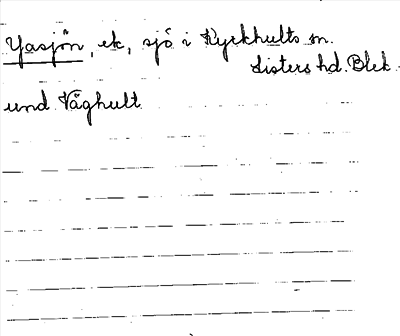 Yasjön, ek, sjö i Kyrkhults sn.
Listers hd. Blek.
und Våghult